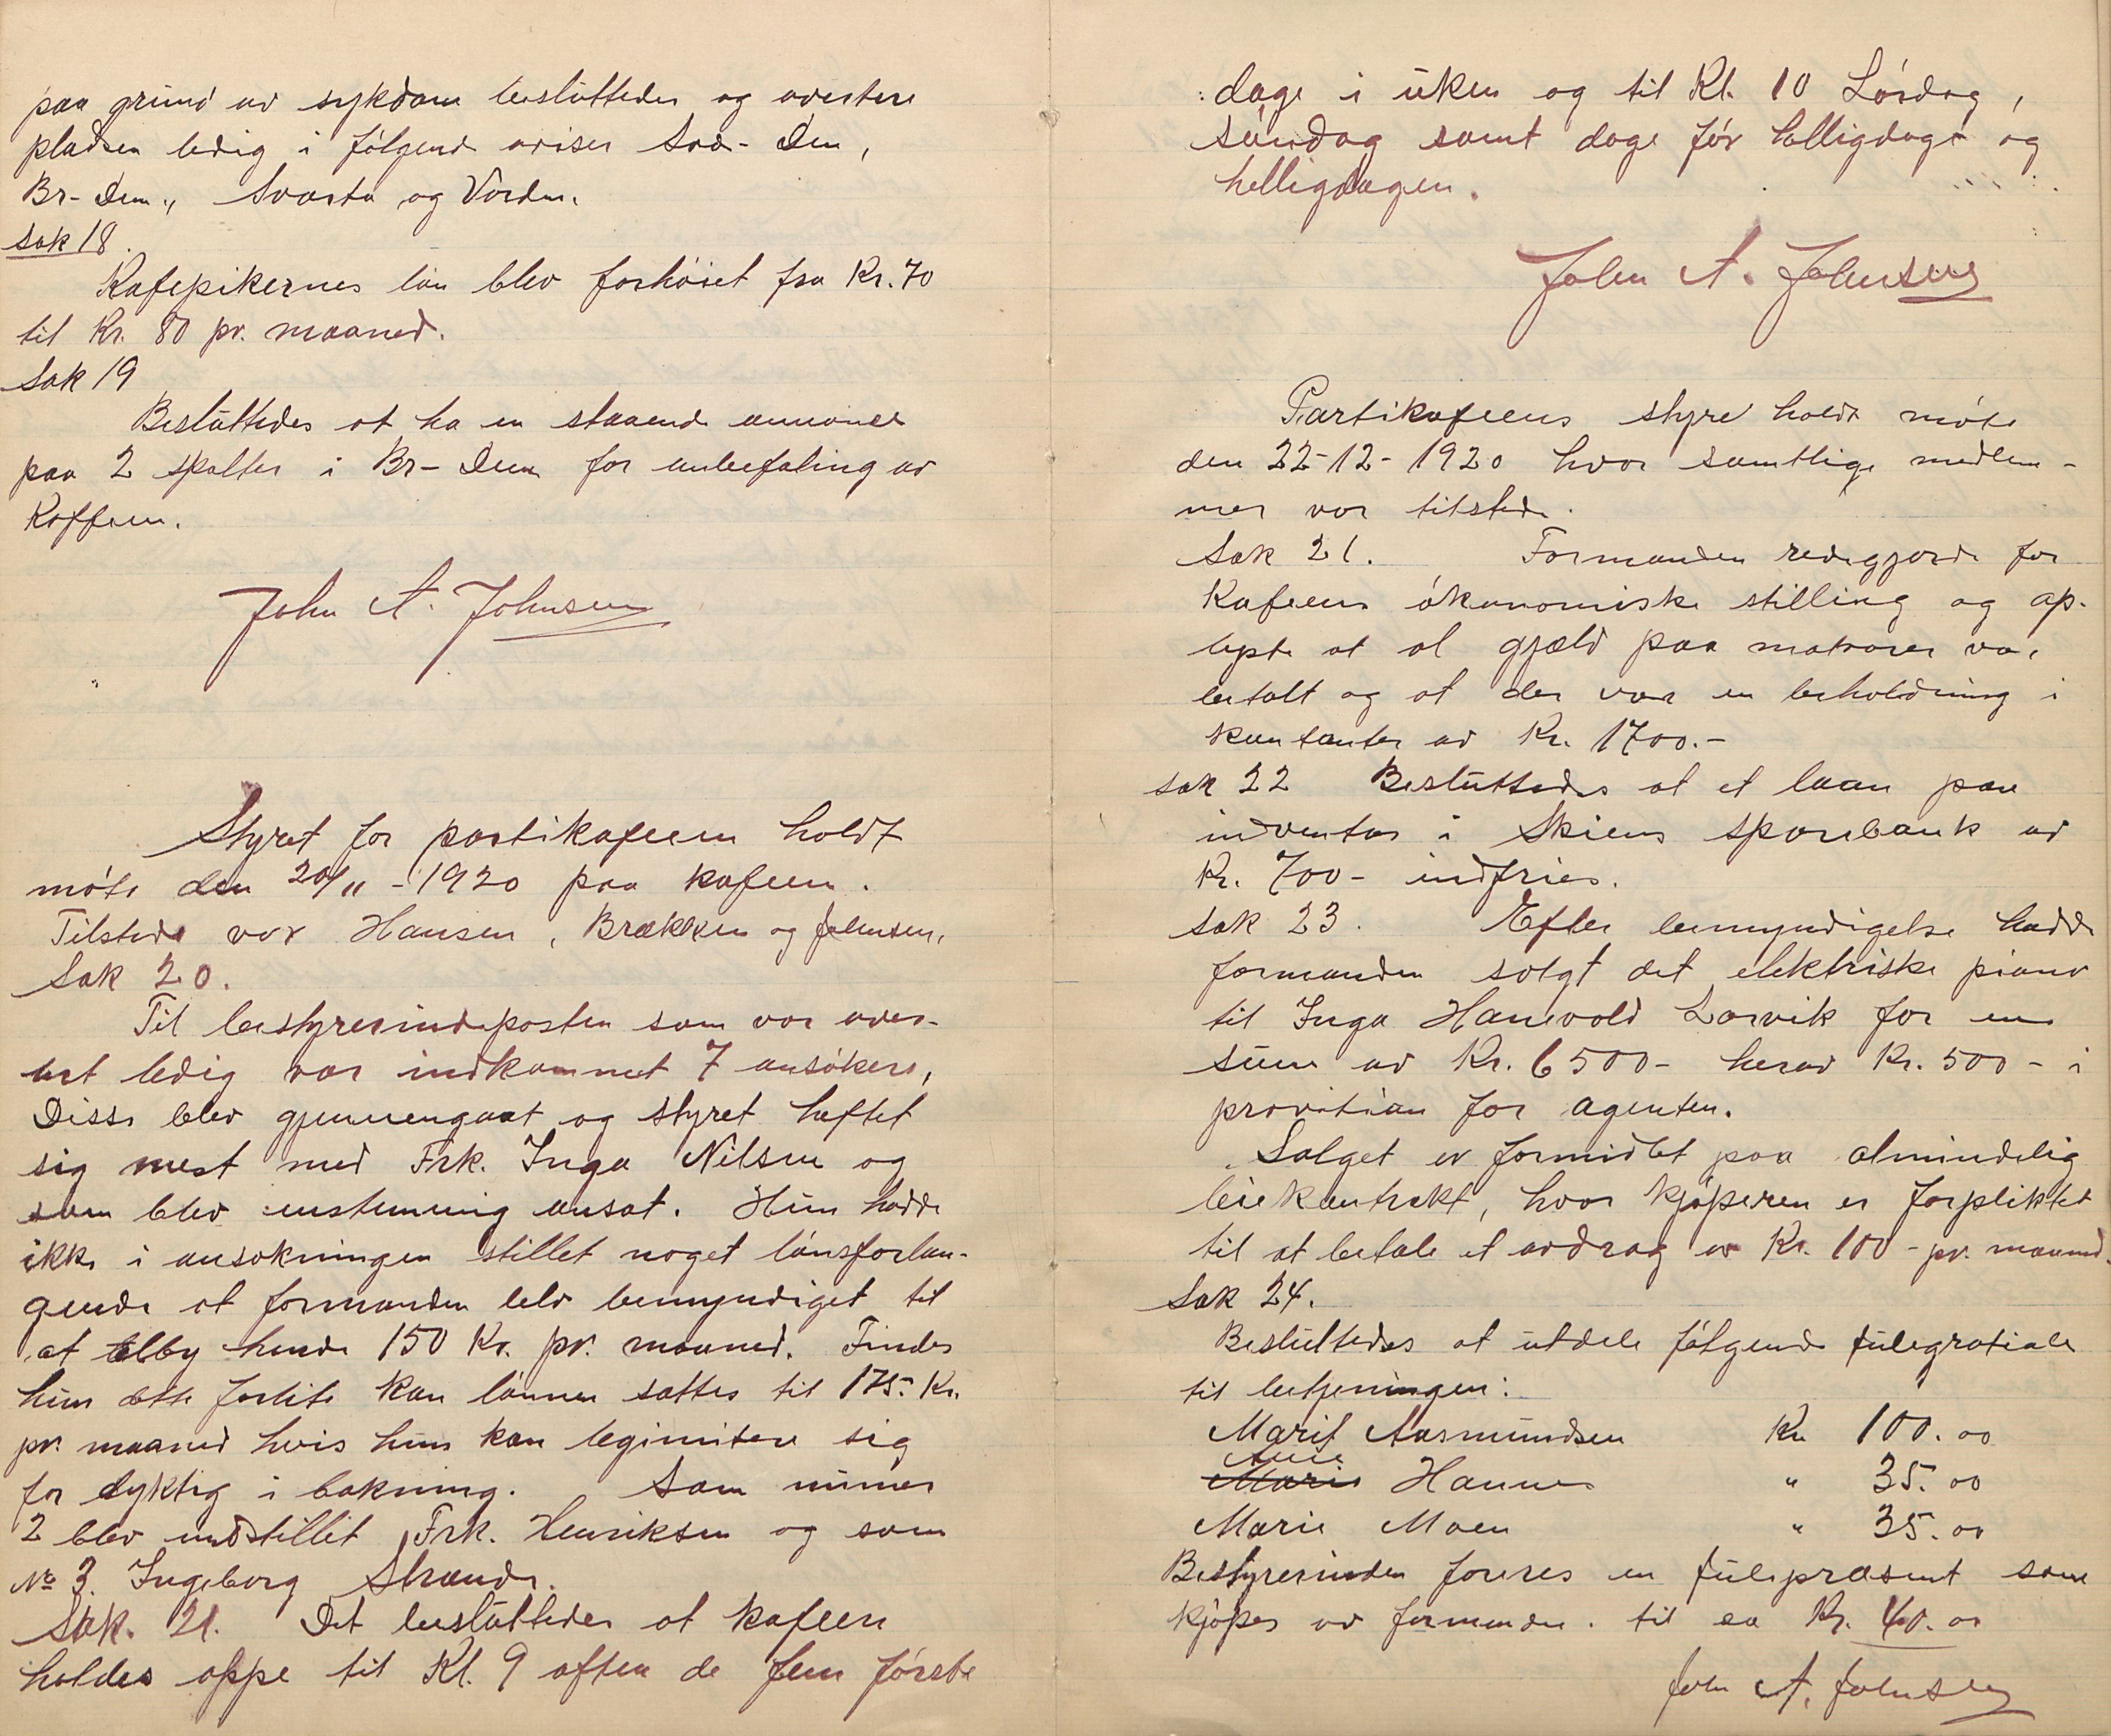 paa grund av sykdom besluttedes og avertere
pladsen ledig i følgende aviser Soc-Dem,
Br-Dem., Svarta og Varden.
Sak 18.
Kafepikernes løn blev forhöiet fra Kr. 70
til Kr. 80 pr. maaned.
Sak 19
Besluttedes at ha en staaende annonce
paa 2 spalter i Br-Dem for anbefaling av
Kaffeen.
John A. Johnsen
Styret for partikafeen holdt
møte den 20/11 - 1920 paa kafeen.
Tilstede var Hansen, Brækken og Johnsen.
Sak 20.
Til bestyrerindeposten som var aver-
tert ledig var indkommet 7 ansökere,
Disse blev gjennemgaat og styret heftet
sig mest med Frk. Inga Nilsen og
som blev enstemmig ansat. Hun hadde
ikke i ansokningen stillet noget lönsforlan-
gende at formanden belv bemyndiget til
at tilby hende 150 Kr. pr. maaned. Findes
hun dette forlite kan lönnen sættes til 175.- Kr.
pr. maaned hvis hun kan legimitere sig
for dyktig i bakning. Som numer
2 blev indstillet Frk. Henriksen og som
No 3. Ingeborg Strande.
Sak. 21. Det besluttedes at kafeen
holdes oppe til Kl. 9 aften de fem förste
dage i uken og til Kl. 10 Lördag,
söndag samt dage för helligdage og
helligdagen.
John A. Johnsen
Partikafeens styre holdt möte
den 22-12-1920 hvor samtlige medlem-
mer var tilstede.
Sak 21. Formanden redegjorde for
Kafeens ökonomiske stilling og op-
lyste at al gjæld paa matvarer var
betalt og at der var en beholdning i
kontanter av Kr. 1700.-
sak 22 Besluttedes at et laan paa
inventar i Skiens sparebank av
Kr. 700- indfries.
sak 23. Efter bemyndigelse hadde
formanden solgt det elektriske piano
til Inga Hanevold Larvik for en
sum av Kr. 6500- herav Kr. 500- i
provition for agenten.
Salget er formidlet paa almindelig
leiekontrakt, hvor kjöperen er forpliktet
til at betale et avdrag av Kr. 100- pr. maaned.
Sak 24.
Besluttedes at utdele fölgende julegratiale
til betjeningen:
Marit Aasmundsen Kr 100.00
Anne
Marie Hannes " 35.00
Marie Moen " 35.00
Bestyrerinden foreres en julepræsent som
kjöpes av formanden. til ca Kr. 40.00
John A. Johnsen